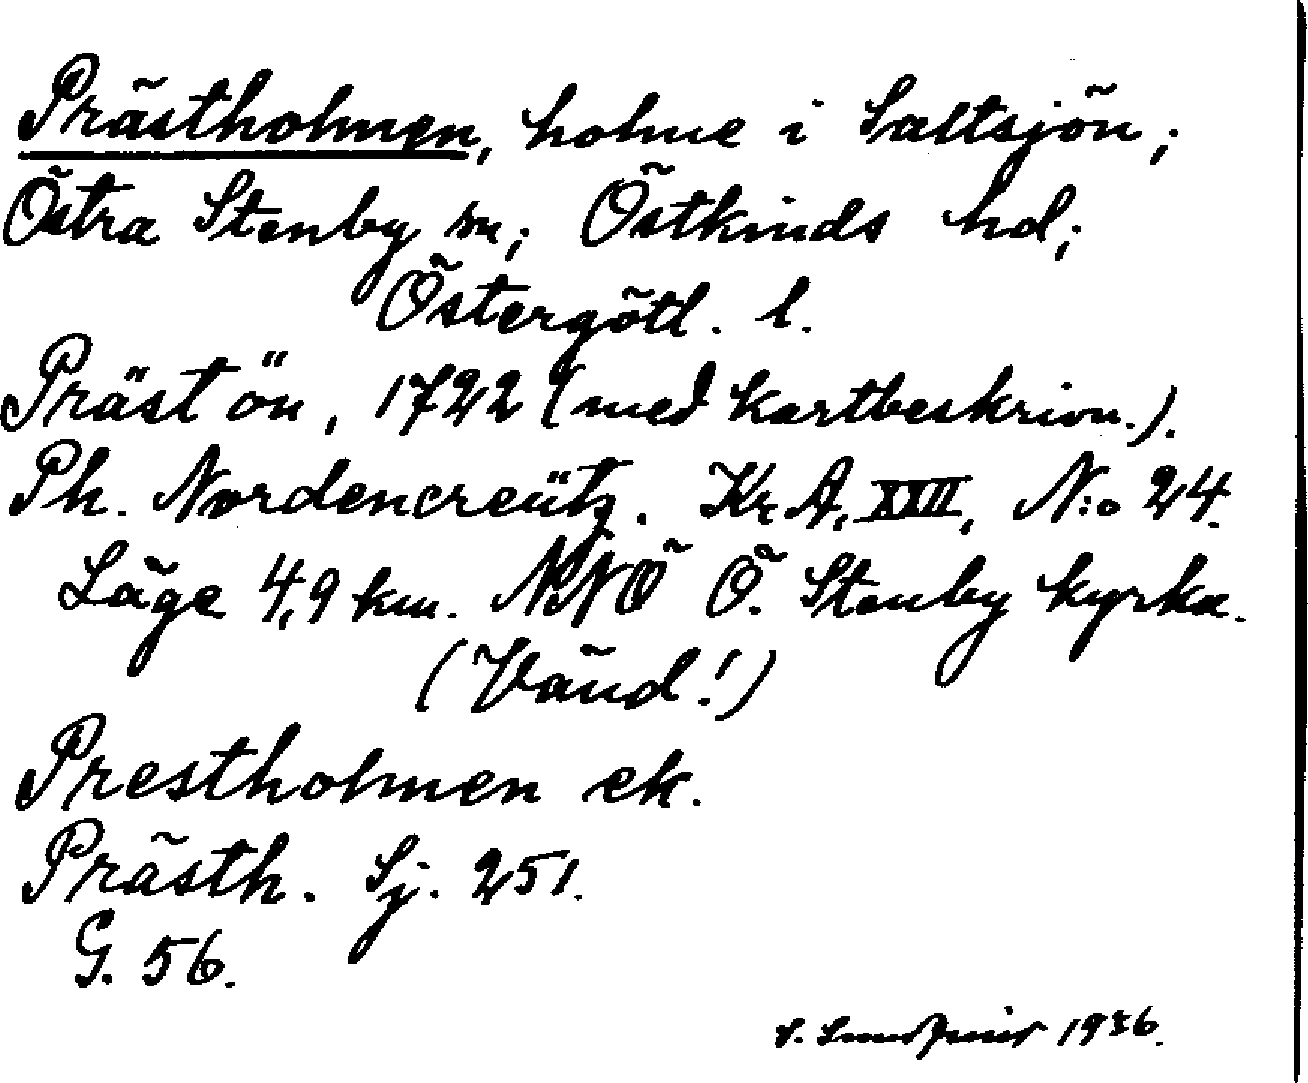 Prästholmen, holme i Saltsjön;
Östra Stenby sn; Östkinds hd;
Östergötl. l.
Präst ön, 1722 (med kartbeskrivn.).
Ph. Nordencreütz. Kr. A. XXII, N:o 24.
Läge 4,9 km. NNÖ Ö. Stenby kyrka.
(Vänd!)
Prestholmen ek.
Prästh. Sj. 251.
G. 56.
1936.